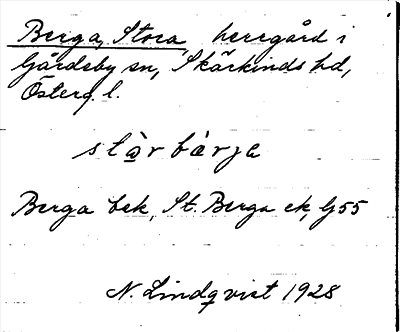 Berga, Stora, herrgård i
Gårdeby sn, Skärkinds hd,
Österg. l.
stɷ̀r bárja
Berga bek, St. Berga ek, G 55
N. Lindqvist 1928